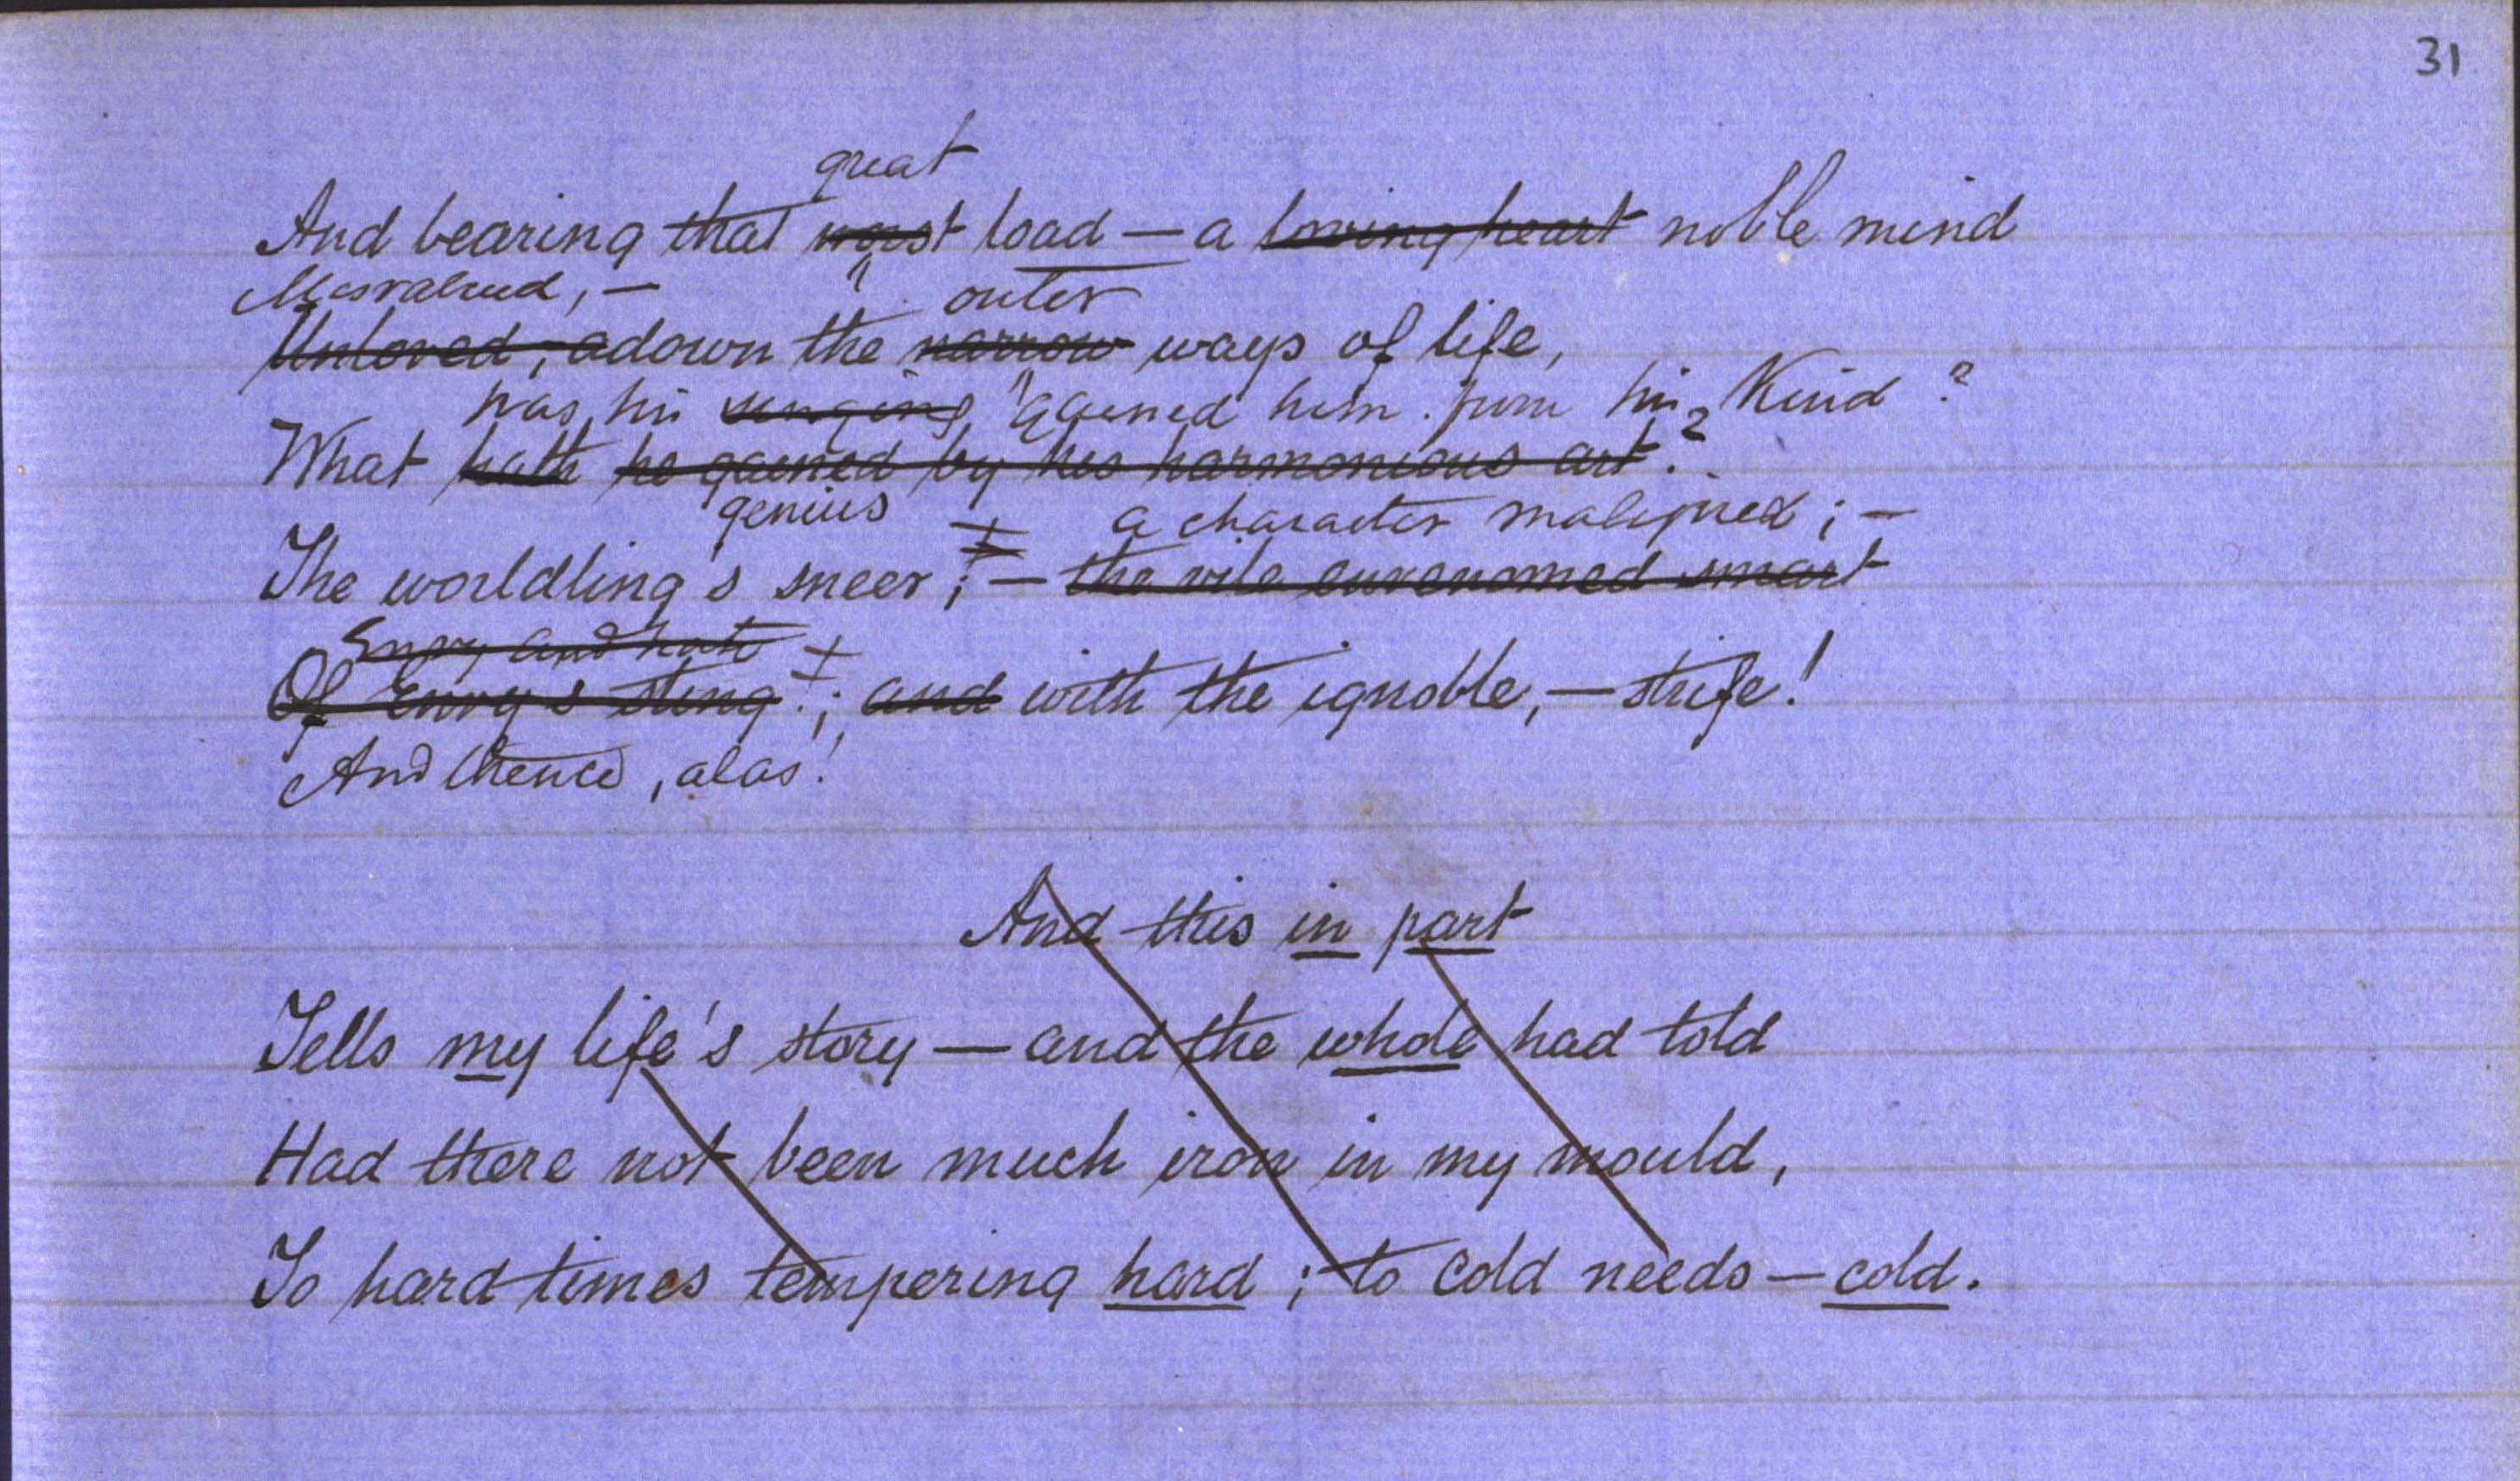 31
great
And bearing that worst load — a loving heart noble mind
Misvalued, — outer
Unloved, adown the narrow ways of life,
was his singing gained him from his Kind?
What hath he gained by his harmonious art?
genius a character maligned; —
The worldling's sneer; — the vile envenomed smart
Envy and hate
Of Envy's sting!; and with the ignoble, — strife!
And thence, alas!
And this in part
Tells my life's story — and the whole had told
Had there not been much iron in my mould,
To hard times tempering hard; to cold needs — cold.